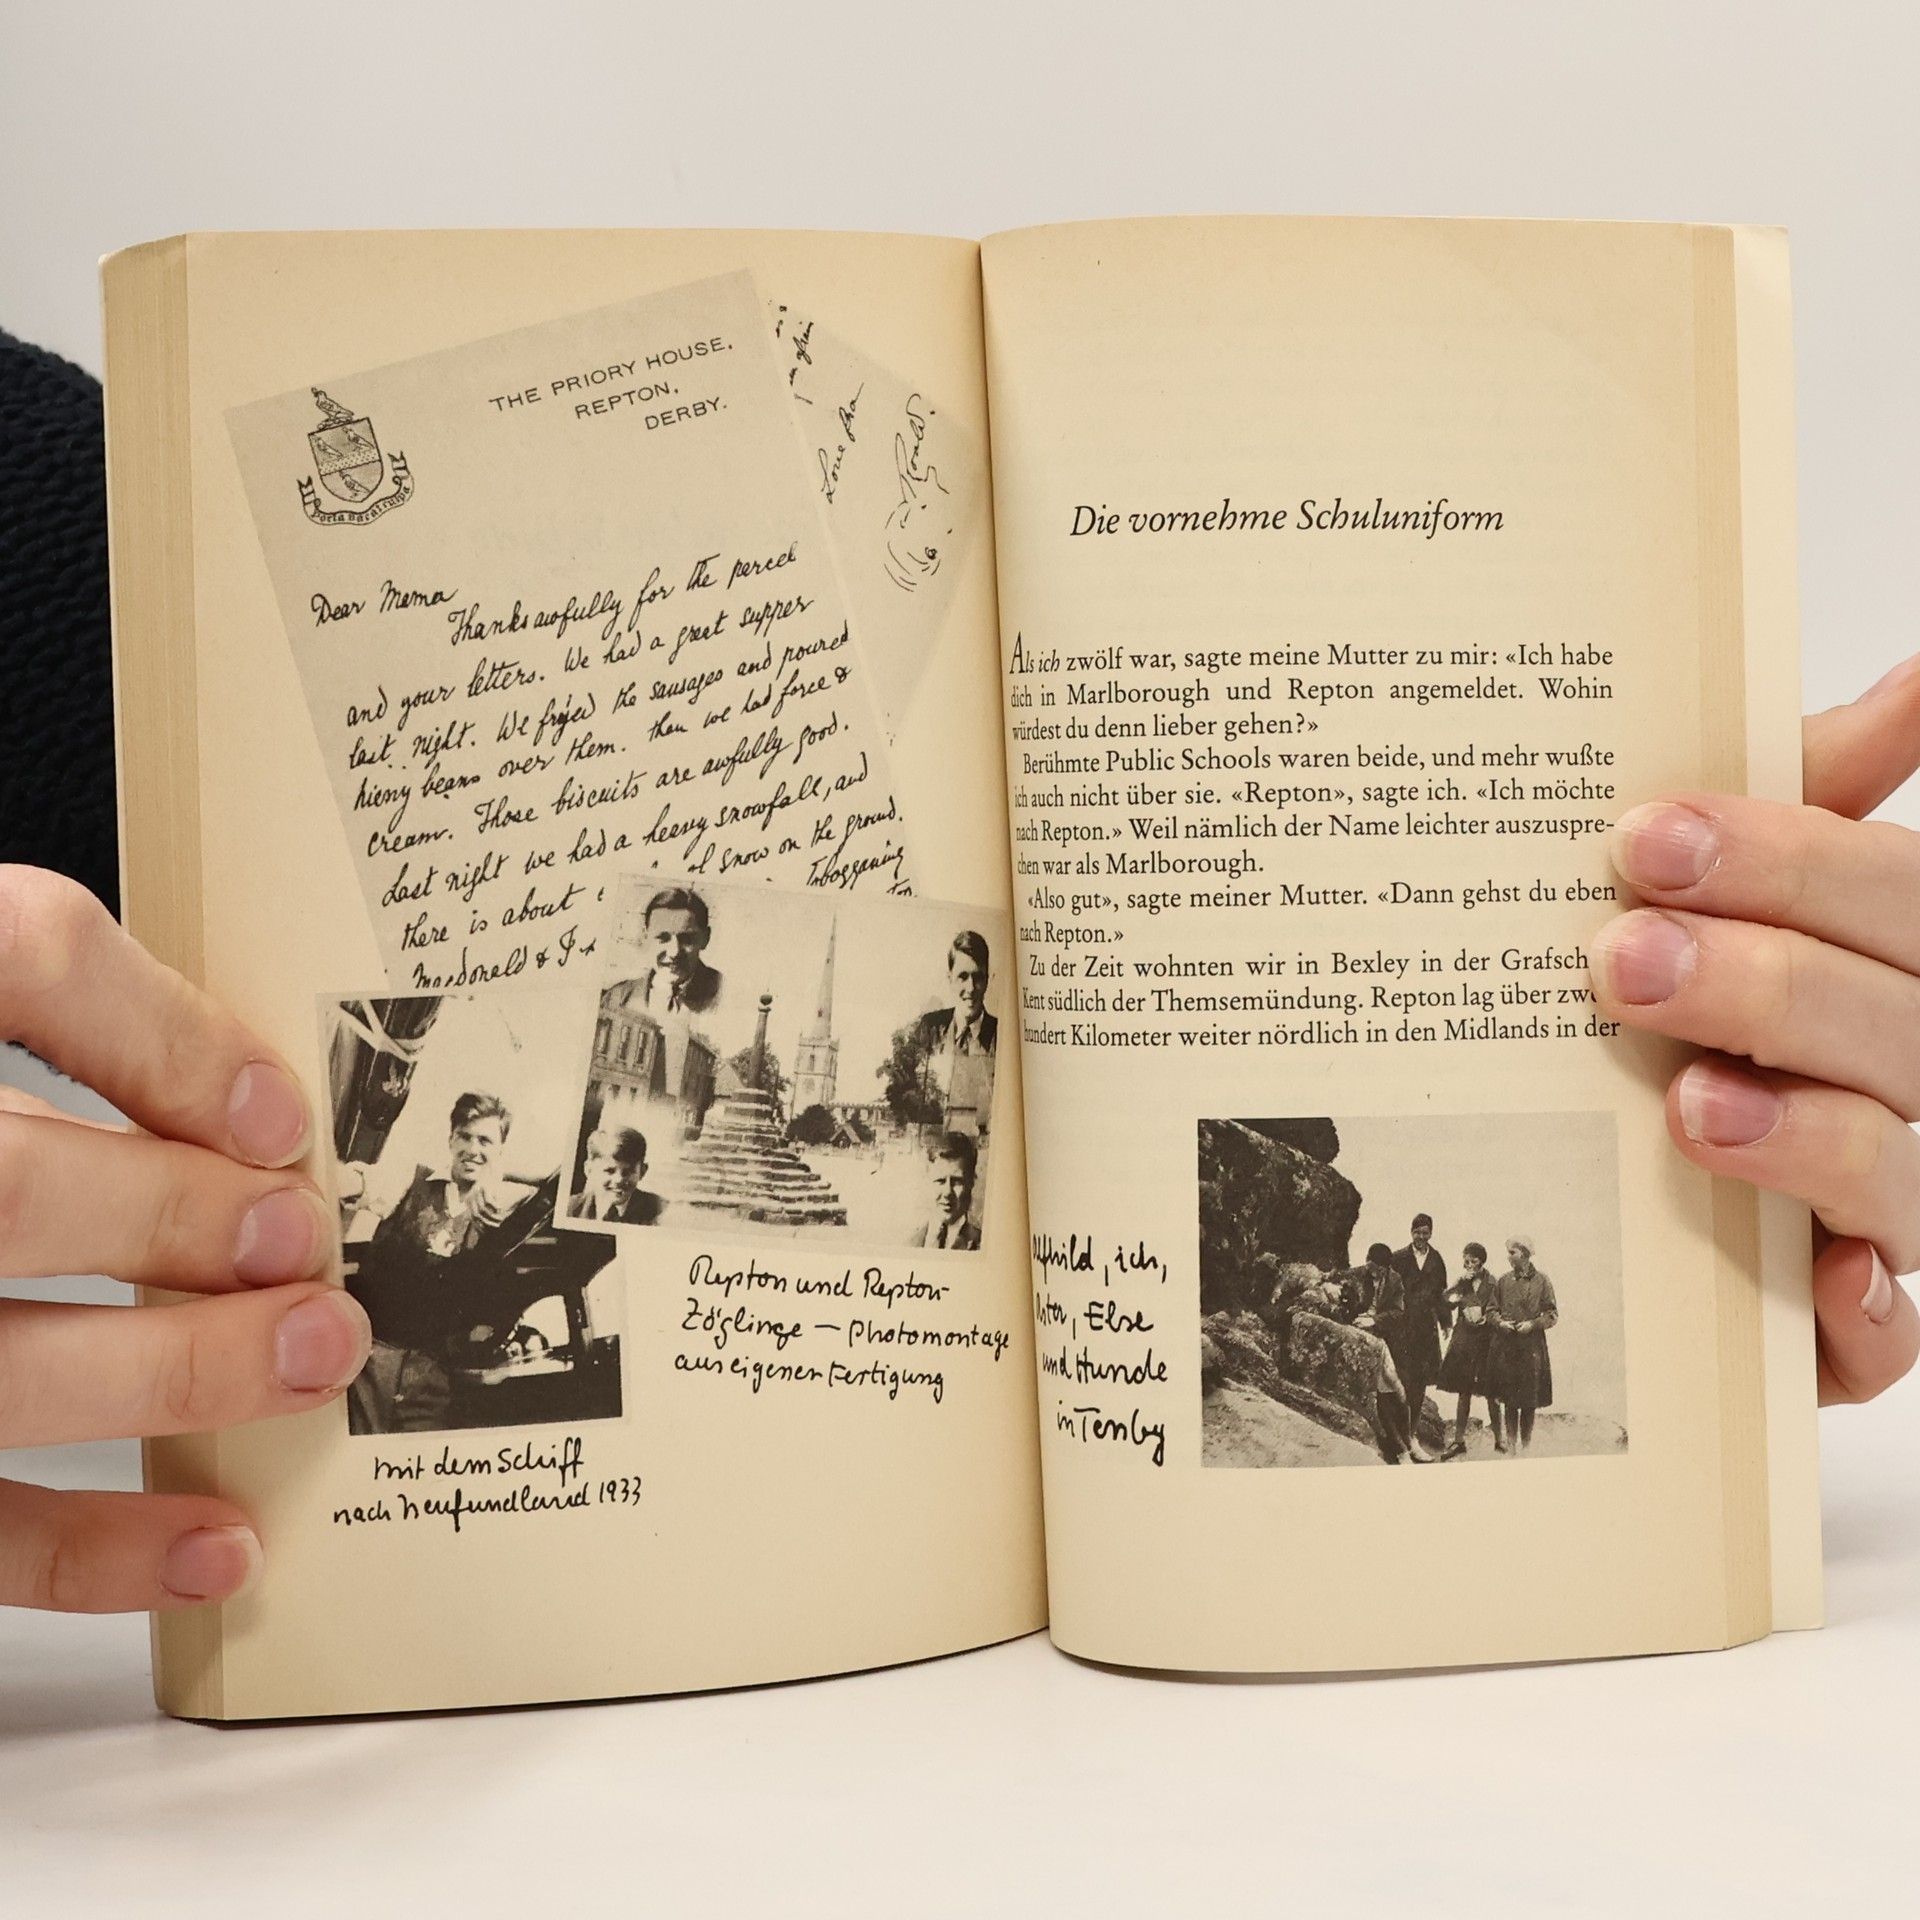 THE PRIORY HOUSE,
REPTON,
DERBY.
Porta Vacat Culpa
Dear Mama
Thanks awfully for the parcel
and your letters. We had a great supper
last night. We fryed the sausages and poured
hieny beans over them. then we had force &
cream. Those biscuits are awfully good.
Last night we had a heavy snowfall, and
there is about snow on the ground.
Macdonald & I tobogganing
Love from
Roald
mit dem Schiff
nach Neufundland 1933
Repton und Repton-
Zöglinge – Photomontage
aus eigener Fertigung
Die vornehme Schuluniform
Als ich zwölf war, sagte meine Mutter zu mir: «Ich habe
dich in Marlborough und Repton angemeldet. Wohin
würdest du denn lieber gehen?»
Berühmte Public Schools waren beide, und mehr wußte
ich auch nicht über sie. «Repton», sagte ich. «Ich möchte
nach Repton.» Weil nämlich der Name leichter auszuspre-
chen war als Marlborough.
«Also gut», sagte meiner Mutter. «Dann gehst du eben
nach Repton.»
Zu der Zeit wohnten wir in Bexley in der Grafsch
Kent südlich der Themsemündung. Repton lag über zwe
hundert Kilometer weiter nördlich in den Midlands in der
Alfhild, ich,
Else
und Hunde
in Tenby